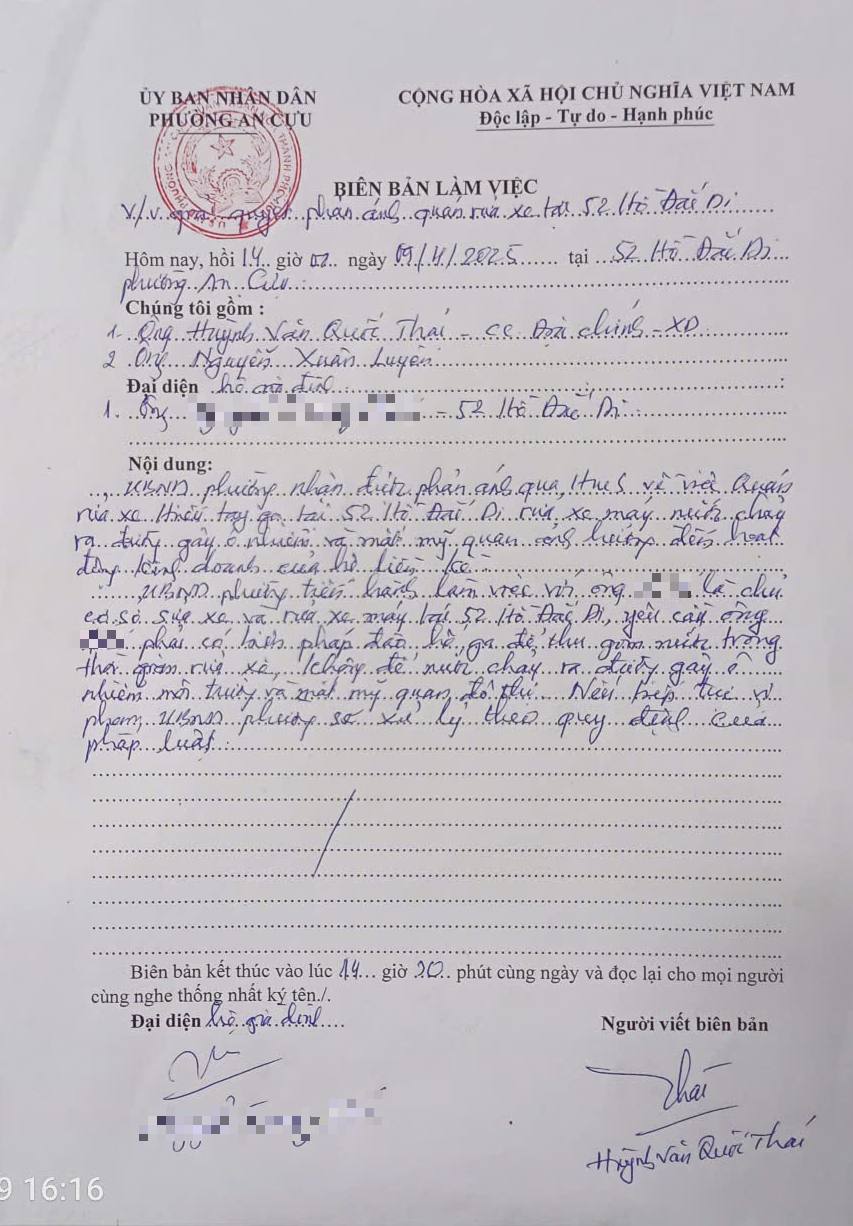 ỦY BAN NHÂN DÂN
PHƯỜNG AN CỰU
CỘNG HÒA XÃ HỘI CHỦ NGHĨA VIỆT NAM
Độc lập - Tự do - Hạnh phúc
BIÊN BẢN LÀM VIỆC
V/v giải quyết phản ánh quán rửa xe tại 52 Hồ Đắc Di
Hôm nay, hồi 14 giờ 00 ngày 09/4/2025 tại 52 Hồ Đắc Di
phường An Cựu
Chúng tôi gồm :
1. Ông Huỳnh Văn Quốc Thái - CC Địa chính - XD
2 Ông Nguyễn Xuân Luyện
Đại diện hộ gia đình :
1. Ông - 52 Hồ Đắc Di
Nội dung:
UBND phường nhận được phản ánh qua HueS về việc Quán
rửa xe Hiếu tay ga tại 52 Hồ Đắc Di rửa xe máy nước chảy
ra đường gây ô nhiễm và mất mỹ quan ảnh hưởng đến hoạt
động kinh doanh của hộ liền kề
UBND phường tiến hành làm việc với ông là chủ
cơ sở sửa xe và rửa xe máy tại 52 Hồ Đắc Di, yêu cầu ông
phải có biện pháp đào hố ga để thu gom nước trong
thời gian rửa xe, không để nước chảy ra đường gây ô
nhiễm môi trường và mất mỹ quan đô thị. Nếu tiếp tục vi
phạm, UBND phường sẽ xử lý theo quy định của
pháp luật.
Biên bản kết thúc vào lúc 14 giờ 20 phút cùng ngày và đọc lại cho mọi người
cùng nghe thống nhất ký tên./.
Đại diện hộ gia đình
Người viết biên bản
Thái
Huỳnh Văn Quốc Thái
9 16:16